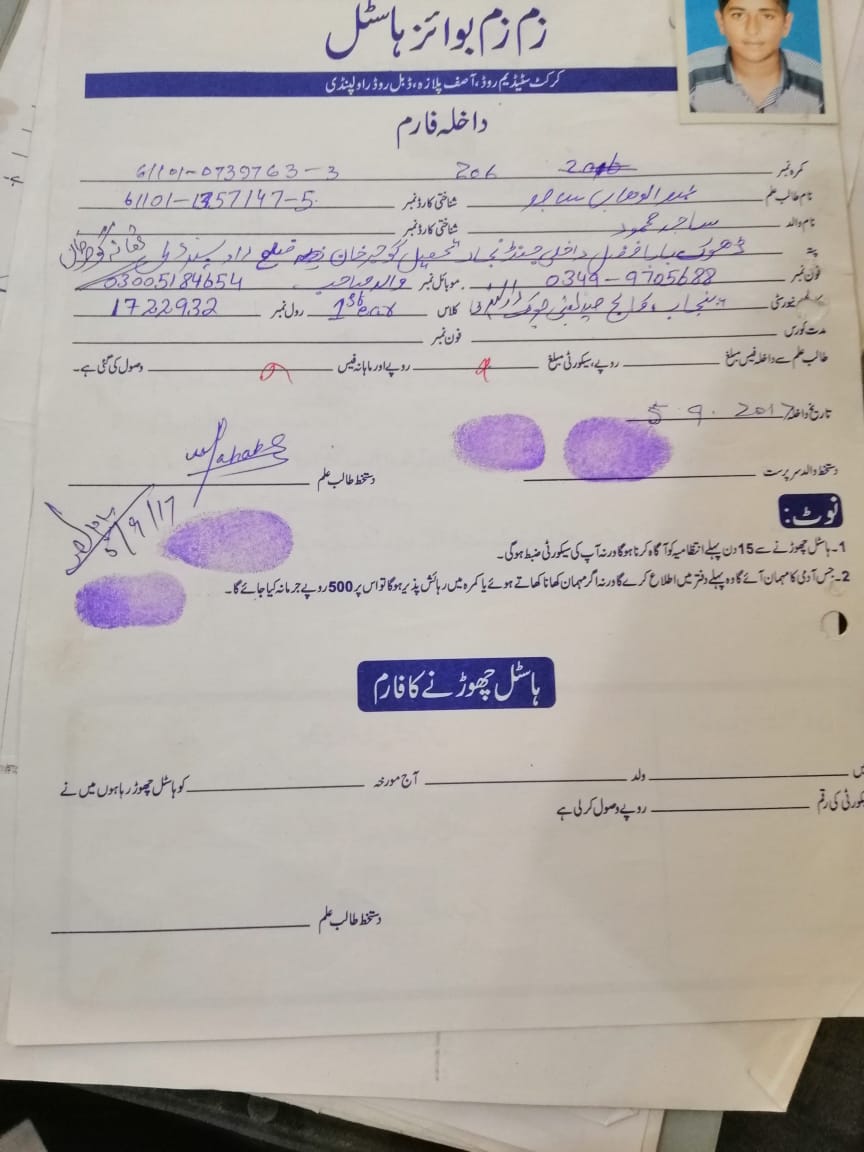 زم زم بوائز ہاسٹل
کرکٹ سٹیڈیم روڈ، آصف پلازہ، ڈبل روڈ راولپنڈی
داخلہ فارم
کمرہ نمبر 206 61101-0739763-3
نام طالب علم عبدالوھاب ساجد شناختی کارڈ نمبر 61101-1357147-5
نام والد ساجد محمود شناختی کارڈ نمبر
پتہ ڈھوک داخلی تحصیل گوجرخان ضلع راولپنڈی
فون نمبر 0349-9705688 موبائل نمبر والد صاحب 03005184654
پنجاب کالج چوک کلاس 1st year رول نمبر 1722932
مدت کورس فون نمبر
طالب علم سے داخلہ فیس مبلغ روپے، سیکورٹی مبلغ روپے اور ماہانہ فیس وصول کی گئی ہے۔
تاریخ داخلہ 5.9.2017
دستخط والد سرپرست دستخط طالب علم Wahab
5/9/17
نوٹ:
1- ہاسٹل چھوڑنے سے 15 دن پہلے انتظامیہ کو آگاہ کرنا ہوگا ورنہ آپ کی سیکورٹی ضبط ہوگی۔
2- جس آدمی کا مہمان آئے گا وہ پہلے دفتر میں اطلاع کرے گا ورنہ اگر مہمان کھانا کھاتے ہوئے یا کمرہ میں رہائش پذیر ہوگا تو اس پر 500 روپے جرمانہ کیا جائے گا۔
ہاسٹل چھوڑنے کا فارم
ولد آج مورخہ کو ہاسٹل چھوڑ رہا ہوں میں نے
کی رقم روپے وصول کر لی ہے
دستخط طالب علم